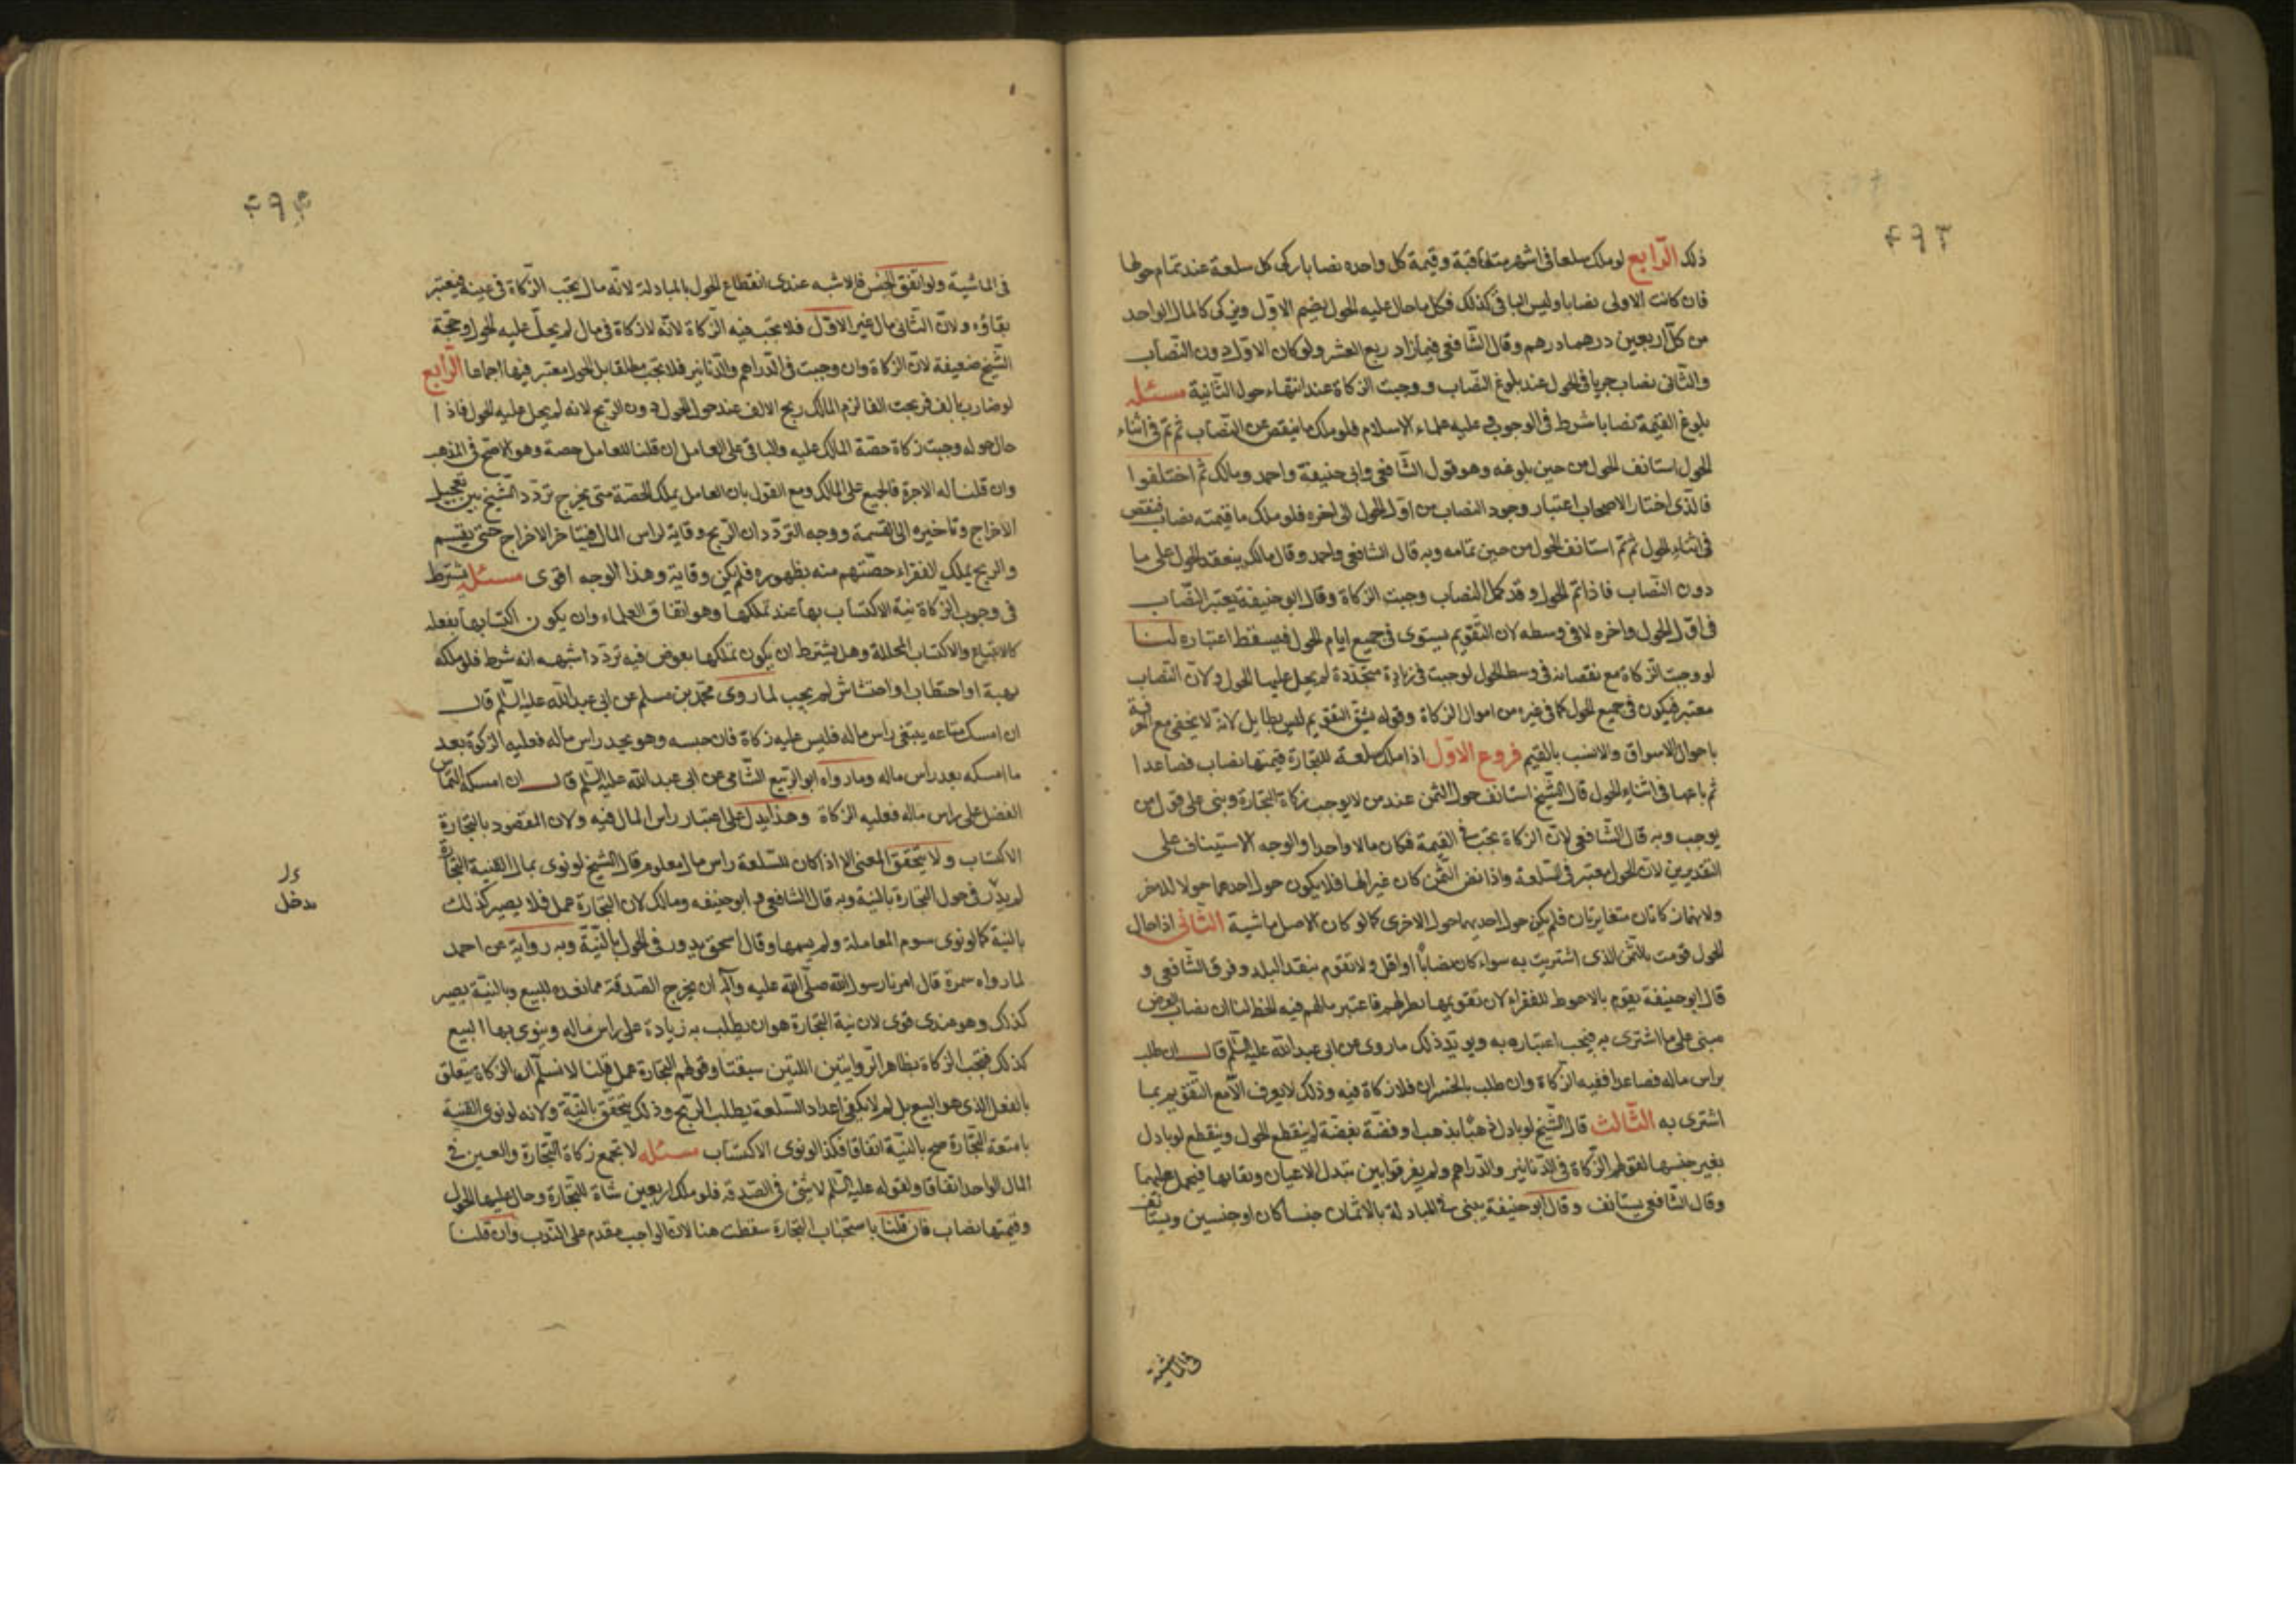 ۴۹۳
ذلك الرّابع لو ملك سلعا فى اشهر متعاقبة وقيمة كل واحده نصابا زكى كل سلعة عند تمام حولها
فان كانت الاولى نصابا وليس الباقى كذلك فكل ما حال عليه الحول يضم الاوّل ويزكى كالمال الواحد
من كل اربعين درهما درهم وقال الشافعى فيما زاد ربع العشر ولو كان الاوّل دون النصاب
والثانى نصاب جريا فى الحول عند بلوغ النصاب ووجبت الزكاة عند انتهاء حول الثانية مسئلة
بلوغ القيمة نصابا شرط فى الوجوب عليه علماء الاسلام فلو ملك ما ينقص عن النصاب ثم تم فى اثناء
الحول استانف الحول من حين بلوغه وهو قول الشافعى وابى حنيفة واحمد ومالك ثم اختلفوا
فالذى اختار الاصحاب اعتبار وجود النصاب من اوّل الحول الى اخره فلو ملك ما قيمته نصاب فنقص
فى اثناء الحول ثم تم استانف الحول من حين تمامه وبه قال الشافعى واحمد وقال مالك ينعقد الحول على ما
دون النصاب فاذا تم الحول وقد كمل النصاب وجبت الزكاة وقال ابو حنيفة يعتبر النصاب
فى اوّل الحول واخره لا فى وسطه لان التقويم يستوى فى جميع ايام الحول فيسقط اعتباره لنا
لو وجبت الزكاة مع نقصانه فى وسط الحول لوجبت فى زيادة متجددة لم يحل عليها الحول ولان النصاب
معتبر فيكون فى جميع الحول كما فى غيره من اموال الزكاة وقوله يشق التقويم ليس بطايل لانه لا يخفى مع المعرفة
باحوال الاسواق والانسب بالقيم فروع الاوّل اذا ملك سلعة للتجارة قيمتها نصاب فصاعدا
ثم باعها فى اثناء الحول قال الشيخ استانف حول الثمن عند من لا يوجب زكاة التجارة وبنى على قول من
يوجب وبه قال الشافعى لان الزكاة تجب فى القيمة فكان مالا واحدا والوجه الاستيناف على
التقديرين لان الحول معتبر فى السلعة واذا نض الثمن كان غيرها فلا يكون حول احدهما حولا للاخر
ولانهما زكاتان متغايرتان فلم يكن حول احديهما حول الاخرى كما لو كان الاصل ماشية الثّانى اذا حال
الحول قومت بالثمن الذى اشتريت به سواء كان نصابا او اقل ولا تقوم بنقد البلد وفرق الشافعى و
قال ابو حنيفة يقوم بالاحوط للفقراء لان تقويمها لهم فاعتبر مالهم فيه الحظ لنا ان نصاب العرض
مبنى على ما اشترى به فيجب اعتباره به ويويد ذلك ما روى عن ابى عبد الله عليه السلم قال ان طلب
براس ماله فصاعدا ففيه الزكاة وان طلب بالخسران فلا زكاة فيه وذلك لا يعرف الا مع التقويم بما
اشترى به الثّالث قال الشيخ لو بادل ذهبا بذهب او فضة بفضة لم ينقطع الحول وينقطع لو بادل
بغير جنسها لقولهم الزكاة فى الدنانير والدراهم ولم يفرقوا بين تبدل الاعيان وبقائها فيحمل عليهما
وقال الشافعى يستانف وقال ابو حنيفة يبنى فى المبادلة بالاثمان جنسا كان او جنسين ويستانف
فى الماشية
۴۹۴
فى الماشية ولو اتفق الجنس فالاشبه عندى انقطاع الحول بالمبادلة لانه مال تجب الزكاة فى عينه فيعتبر
بقاؤه ولان الثانى مال غير الاوّل فلا تجب فيه الزكاة لانه لا زكاة فى مال لم يحل عليه الحول وحجة
الشيخ ضعيفة لان الزكاة وان وجبت فى الدراهم والدنانير فلا تجب مطلقا بل الحول معتبر فيها اجماعا الرّابع
لو ضارب بالف فربحت الفا لزم المالك ربح الالف عند حول الحول دون الربح لانه لم يحل عليه الحول فاذا
حال حوله وجبت زكاة حصة المالك عليه والباقى على العامل ان قلنا للعامل حصة وهو الاصح فى المذهب
وان قلنا له الاجرة فالجميع على المالك ومع القول بان العامل يملك الحصة متى يخرج تردد الشيخ بين تعجيل
الاخراج وتاخيره الى القسمة ووجه التردد ان الربح وقاية لراس المال فيتاخر الاخراج حتى يقسم
والربح يملك الفقراء حصتهم منه بظهوره فلم يكن وقاية وهذا الوجه اقوى مسئلة يشترط
فى وجوب الزكاة نية الاكتساب بها عند تملكها وهو اتفاق العلماء وان يكون اكتسابها بفعله
كالابتياع والاكتساب المحللة وهل يشترط ان يكون تملكها بعوض فيه تردد اشبهه انه شرط فلو ملكه
بهبة او احتطاب او احتشاش لم يجب لما روى محمد بن مسلم عن ابى عبد الله عليه السلم قال
ان امسك متاعه يبتغى راس ماله فليس عليه زكاة فان حبسه وهو يجد راس ماله فعليه الزكوة بعد
ما امسكه بعد راس ماله وما رواه ابو الربيع الشامى عن ابى عبد الله عليه السلم قال ان امسكه التماس
الفضل على راس ماله فعليه الزكاة وهذا يدل على اعتبار راس المال فيه ولان المقصود بالتجارة
الاكتساب ولا يتحقق المعنى الا اذا كان للسلعة راس مال معلوم قال الشيخ لو نوى بمال القنية التجارة
لم يدر فى حول التجارة بالنية وبه قال الشافعى وابو حنيفه ومالك لان التجارة عمل فلا يصير كذلك
بالنية كما لو نوى سوم المعاملة ولم يسمها وقال اسحق يدور فى الحول بالنية وبه رواية عن احمد
لما رواه سمرة قال امرنا رسول الله صلى الله عليه وآله ان نخرج الصدقة مما نعده للبيع وبالنية يصير
كذلك وهو عندى قوى لان نية التجارة هو ان يطلب به زيادة على راس ماله وينوى بها البيع
كذلك فتجب الزكاة بظاهر الروايتين اللتين سبقتا وقولهم التجارة عمل قلنا لا نسلم ان الزكاة يتعلق
بالفعل الذى هو البيع بل لم لا يكفى اعداد السلعة بطلب الربح وذلك يتحقق بالنية ولانه لو نوى القنية
بامتعة التجارة صح بالنية اتفاقا فكذا لو نوى الاكتساب مسئلة لا تجمع زكاة التجارة والعين فى
المال الواحد اتفاقا ولقوله عليه السلم لا ثنى فى الصدقة فلو ملك اربعين شاة للتجارة وحال عليها الحول
وقيمتها نصاب فان قلنا باستحباب التجارة سقطت هنا لان الواجب مقدم على الندب وان قلنا
مدخل